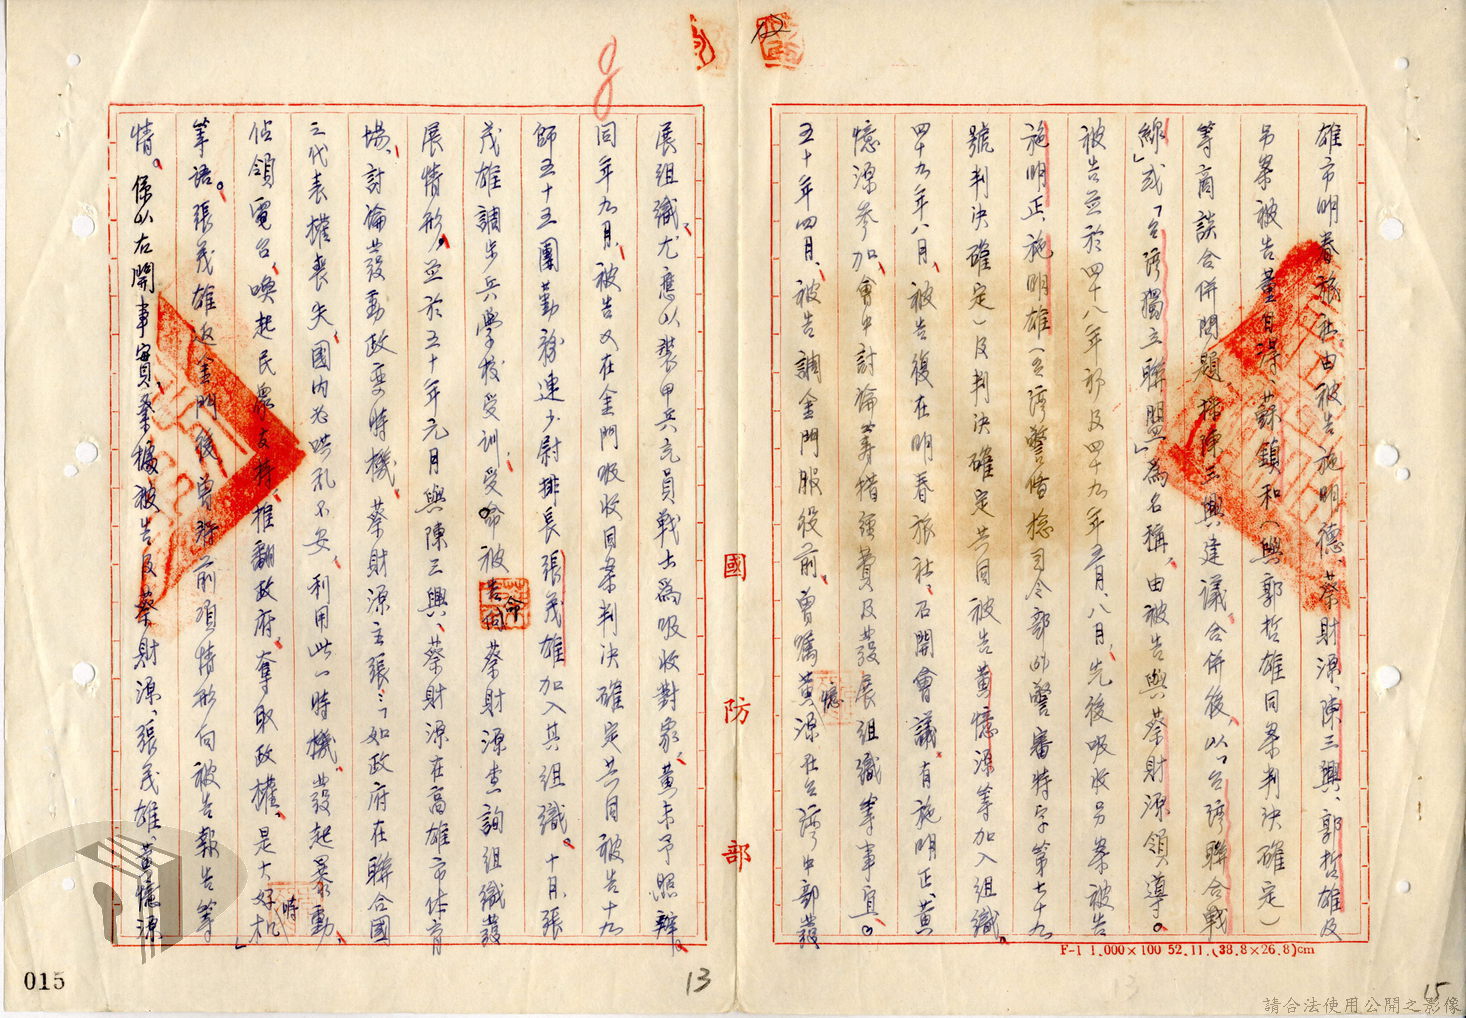 雄市明春旅社由被告施明德、蔡財源、陳三興、郭哲雄及
另案被告董自得、蘇鎮和(與郭哲雄同案判決確定)
等商談合併問題、據陳三興建議、合併後、以「台灣聯合戰
線」或「台灣獨立聯盟」為名稱、由被告與蔡財源領導。
被告並於四十八年部及四十九年五月、八月、先後吸收另案被告
施明正、施明雄(台灣警備總司令部警審特字第七十九
號判決確定)及判決確定共同被告黃憶源等加入組織、
四十九年八月、被告復在明春旅社、召開會議、有施明正、黃
憶源參加、會中討論籌措經費及發展組織等事宜。
五十年四月、被告調金門服役前、曾囑黃憶源在台灣中部發
展組織、尤應以裝甲兵充員戰士為吸收對象、黃未予照辦。
同年九月、被告又在金門吸收同案判決確定共同被告十九
師五十五團勤務連少尉排長張茂雄加入其組織。十月、張
茂雄調步兵學校受訓、受命被告命向蔡財源查詢組織發
展情形。並於五十年元月與陳三興、蔡財源在高雄市體育
場、討論發動政變時機、蔡財源主張:「如政府在聯合國
之代表權喪失、國內必哄亂不安、利用此一時機、發起暴動、
佔領電台、喚起民眾支持、推翻政府、奪取政權、是大好時机」
等語。張茂雄返金門後、曾將前項情形向被告報告等
情。係以右開事實、業據被告及蔡財源、張茂雄、黃憶源
國防部
F-1 1.000×100 52.11.(38.8×26.8)cm
015
13
15
請合法使用公開之影像